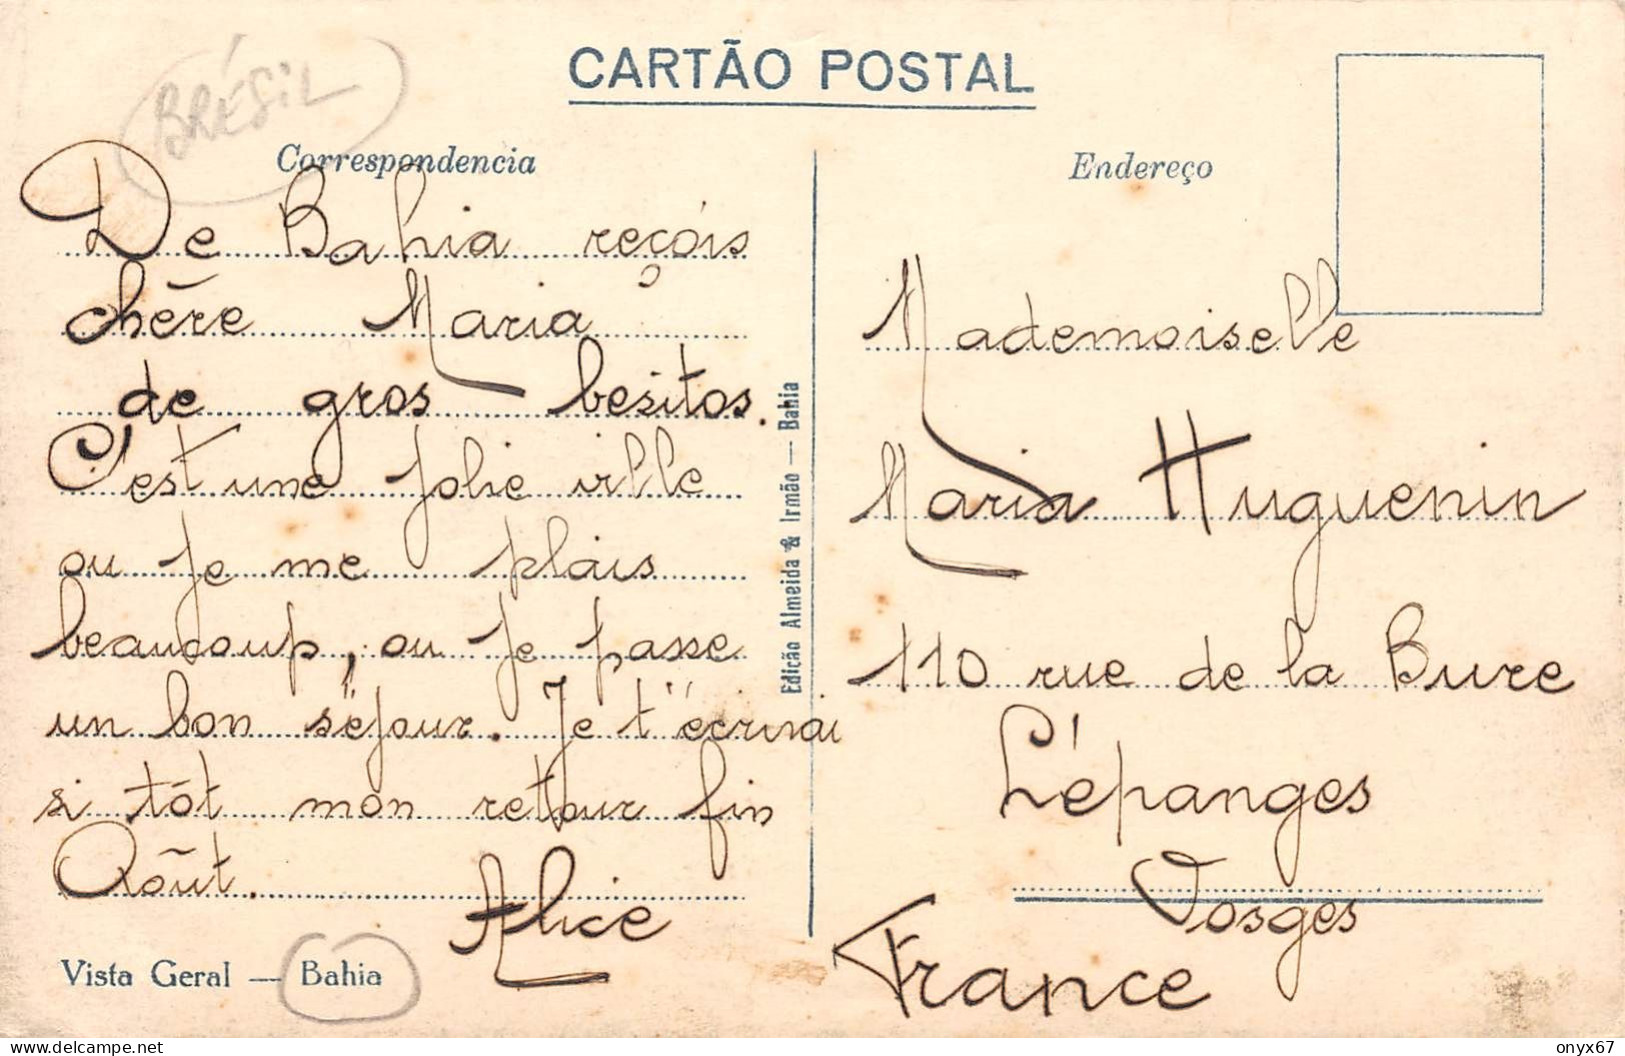 CARTÃO POSTAL
BRÉSIL
Correspondencia
De Bahia reçois
chère Maria
de gros besitos.
C'est une jolie ville
ou je me plais
beaucoup, ou je passe
un bon séjour. Je t'écrirai
si tôt mon retour fin
Aôut.
Alice
Vista Geral — Bahia
Edição Almeida & Irmão — Bahia
Endereço
Mademoiselle
Maria Huguenin
110 rue de la Bure
L'épanges
Vosges
France
delcampe.net
onyx67